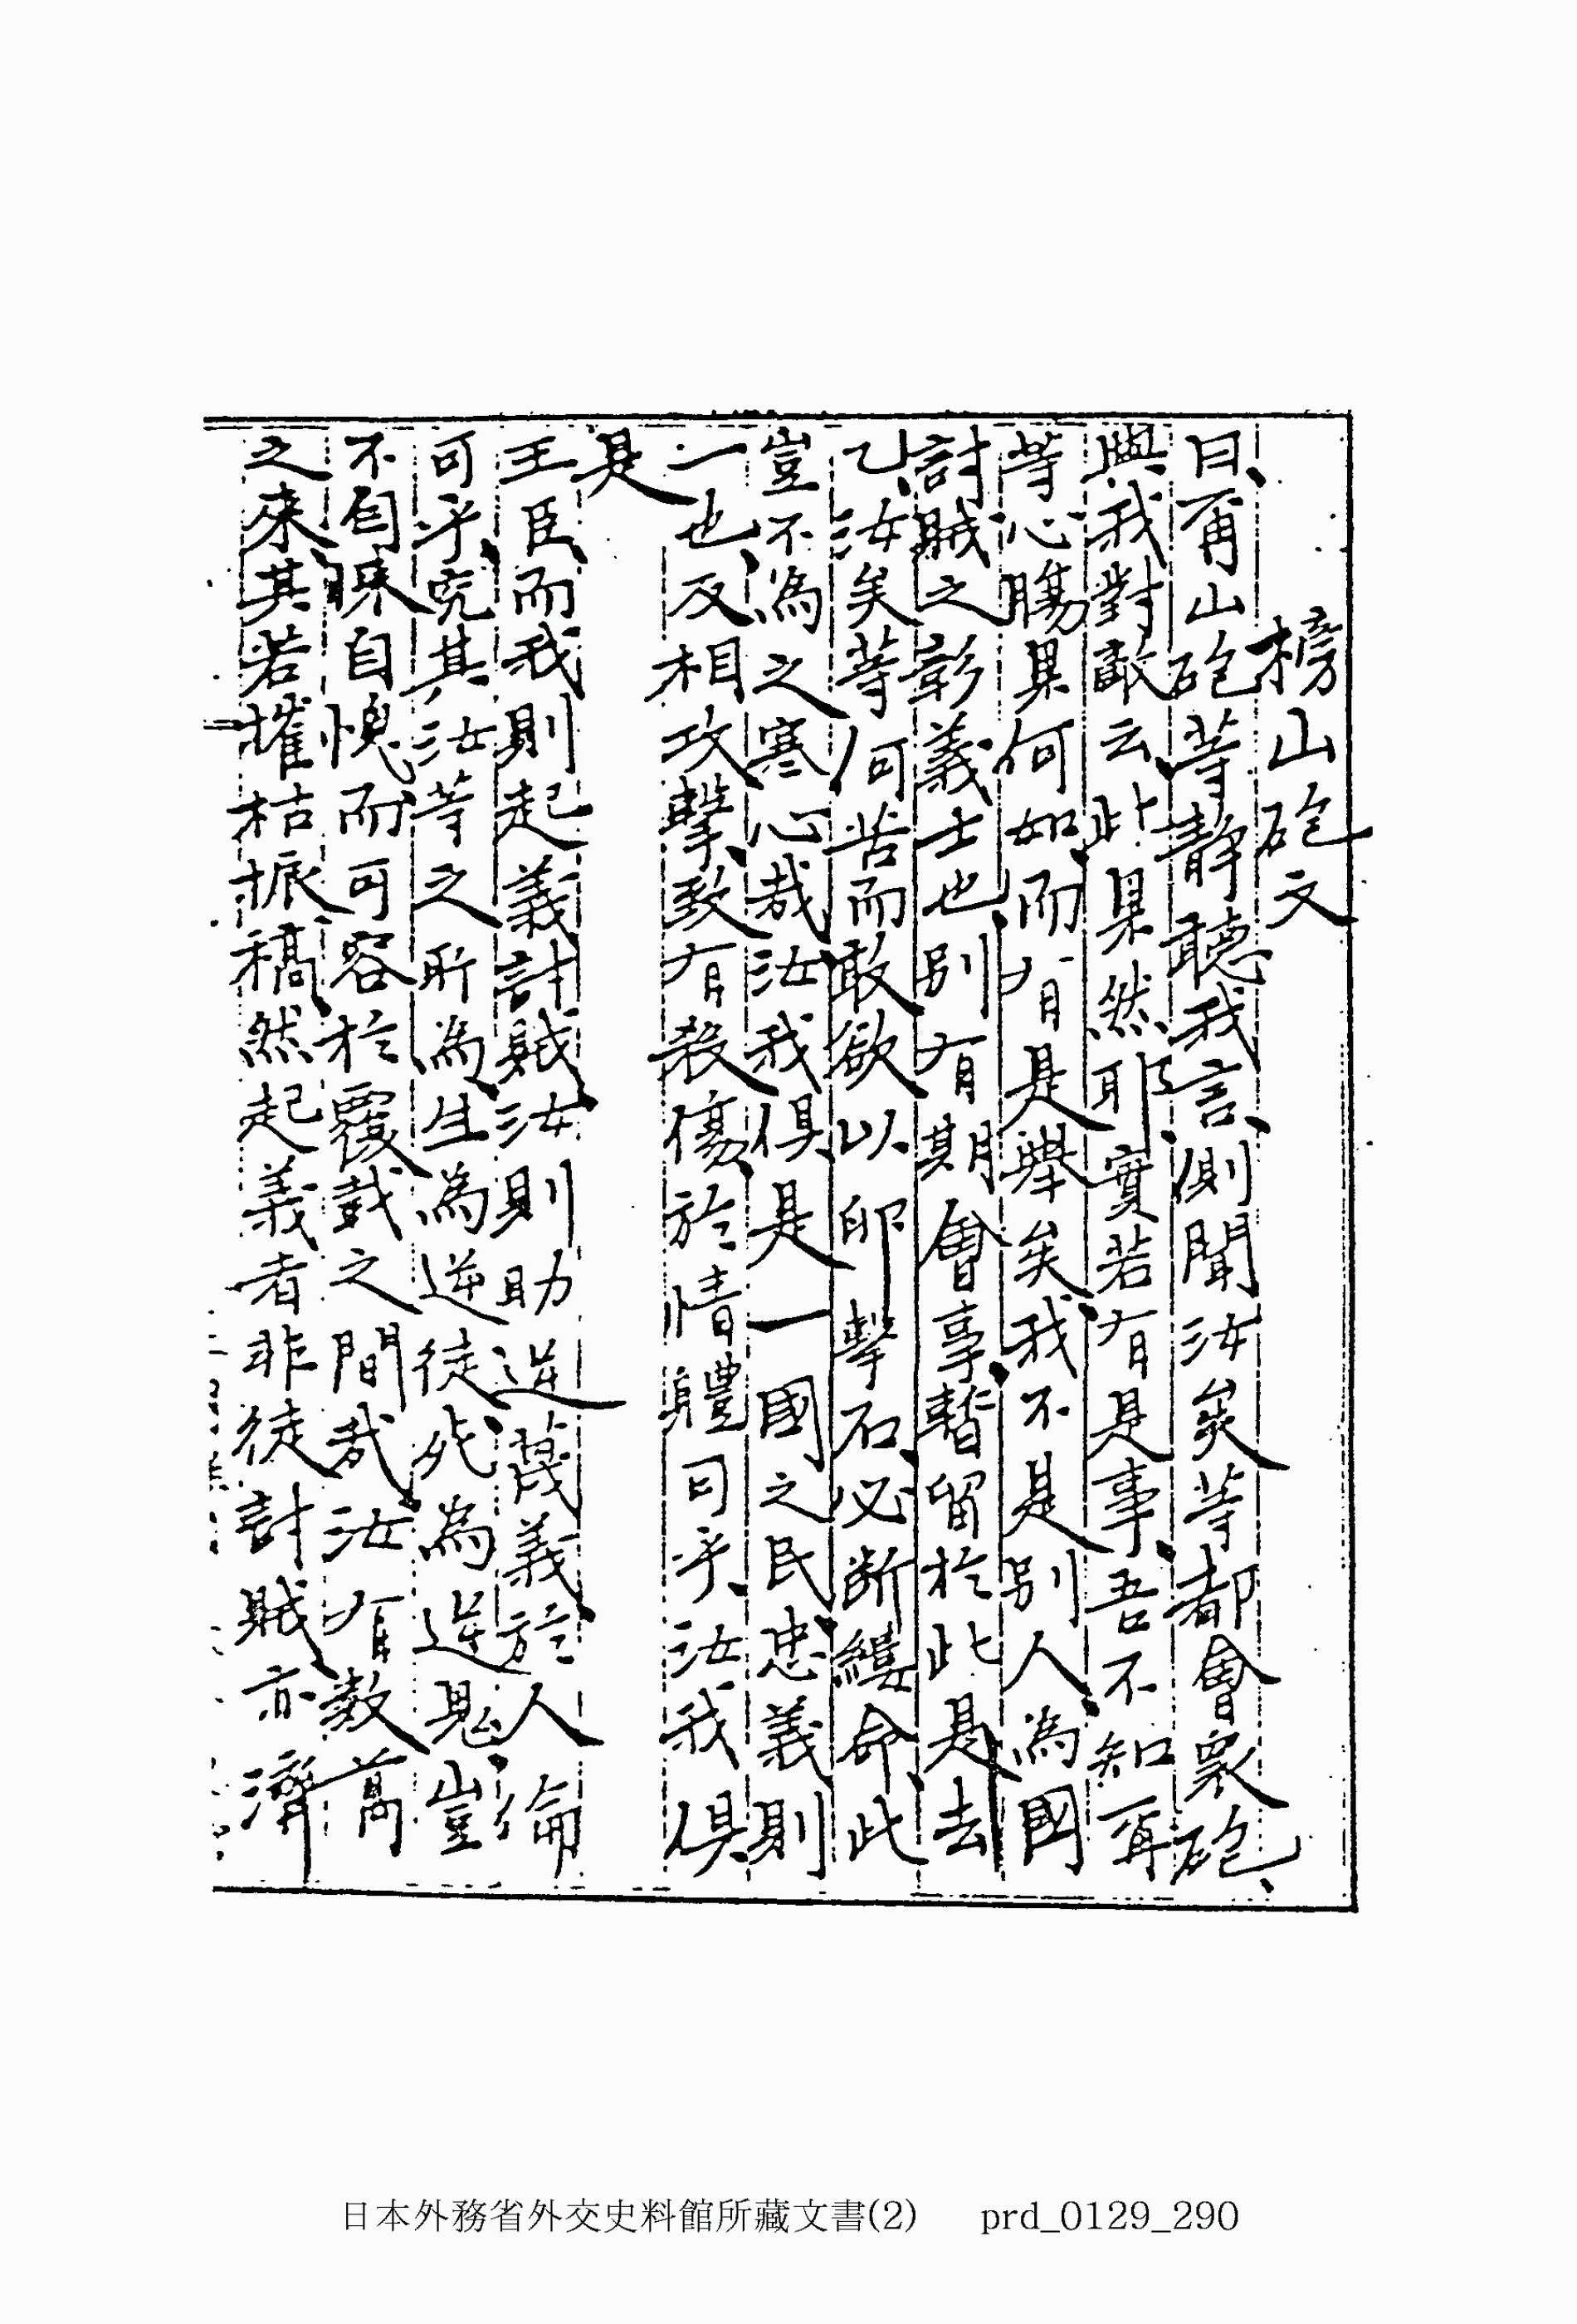 榜山砲文
曰、爾山砲等靜聽我言、側聞汝矣等都會衆砲、
與我對敵云、此果然耶、實若有是事、吾不知爾
等心膓果何如、而有是擧矣、我不是別人、爲國
討賊之彰義士也、別有期會事、暫留於此、是去
乙、汝矣等何苦而敢欲以卵擊石、必斷縷命、此
豈不爲之寒心哉、汝我俱是一國之民、忠義則
一也、反相攻擊、致有殺傷、於情軆可乎、汝我俱
是
王臣、而我則起義討賊、汝則助逆蔑義、於人倫
可乎、究其汝等之所爲、生爲逆徒、死爲逆鬼、豈
不自悚自愧、而可容於覆載之間哉、汝有數萬
之來、其若摧枯振稿、然起義者非徒討賊、亦濟
日本外務省外交史料館所藏文書(2) prd_0129_290